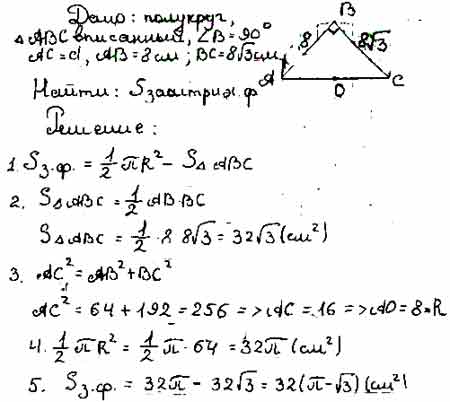 Дано: полукруг,
△ABC вписанный, ∠B = 90°
AC = d, AB = 8 см; BC = 8√3 см
Найти: Sзаштрих. ф
Решение:
B
8
8√3
A
O
C
1. Sз.ф. = 1/2 πR² − S△ABC
2. S△ABC = 1/2 AB·BC
S△ABC = 1/2 · 8 · 8√3 = 32√3 (см²)
3. AC² = AB² + BC²
AC² = 64 + 192 = 256 => AC = 16 => AO = 8 = R
4. 1/2 πR² = 1/2 π · 64 = 32π (см²)
5. Sз.ф. = 32π − 32√3 = 32(π−√3) (см²)